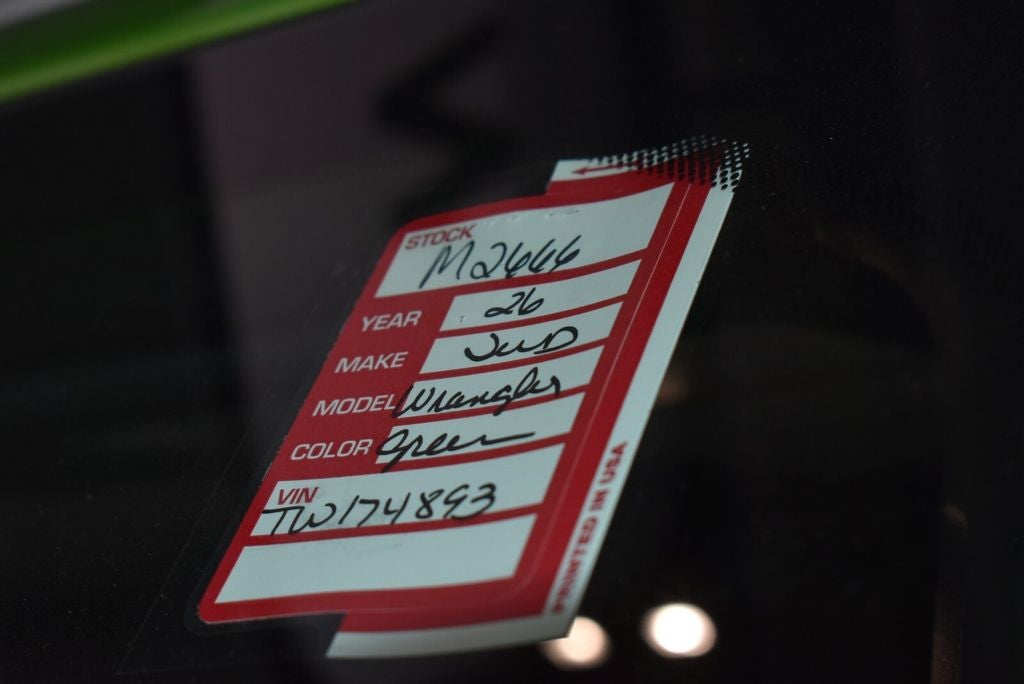 STOCK
M2666
YEAR 26
MAKE
MODEL Wrangler
COLOR Green
VIN
TW174893
PRINTED IN USA